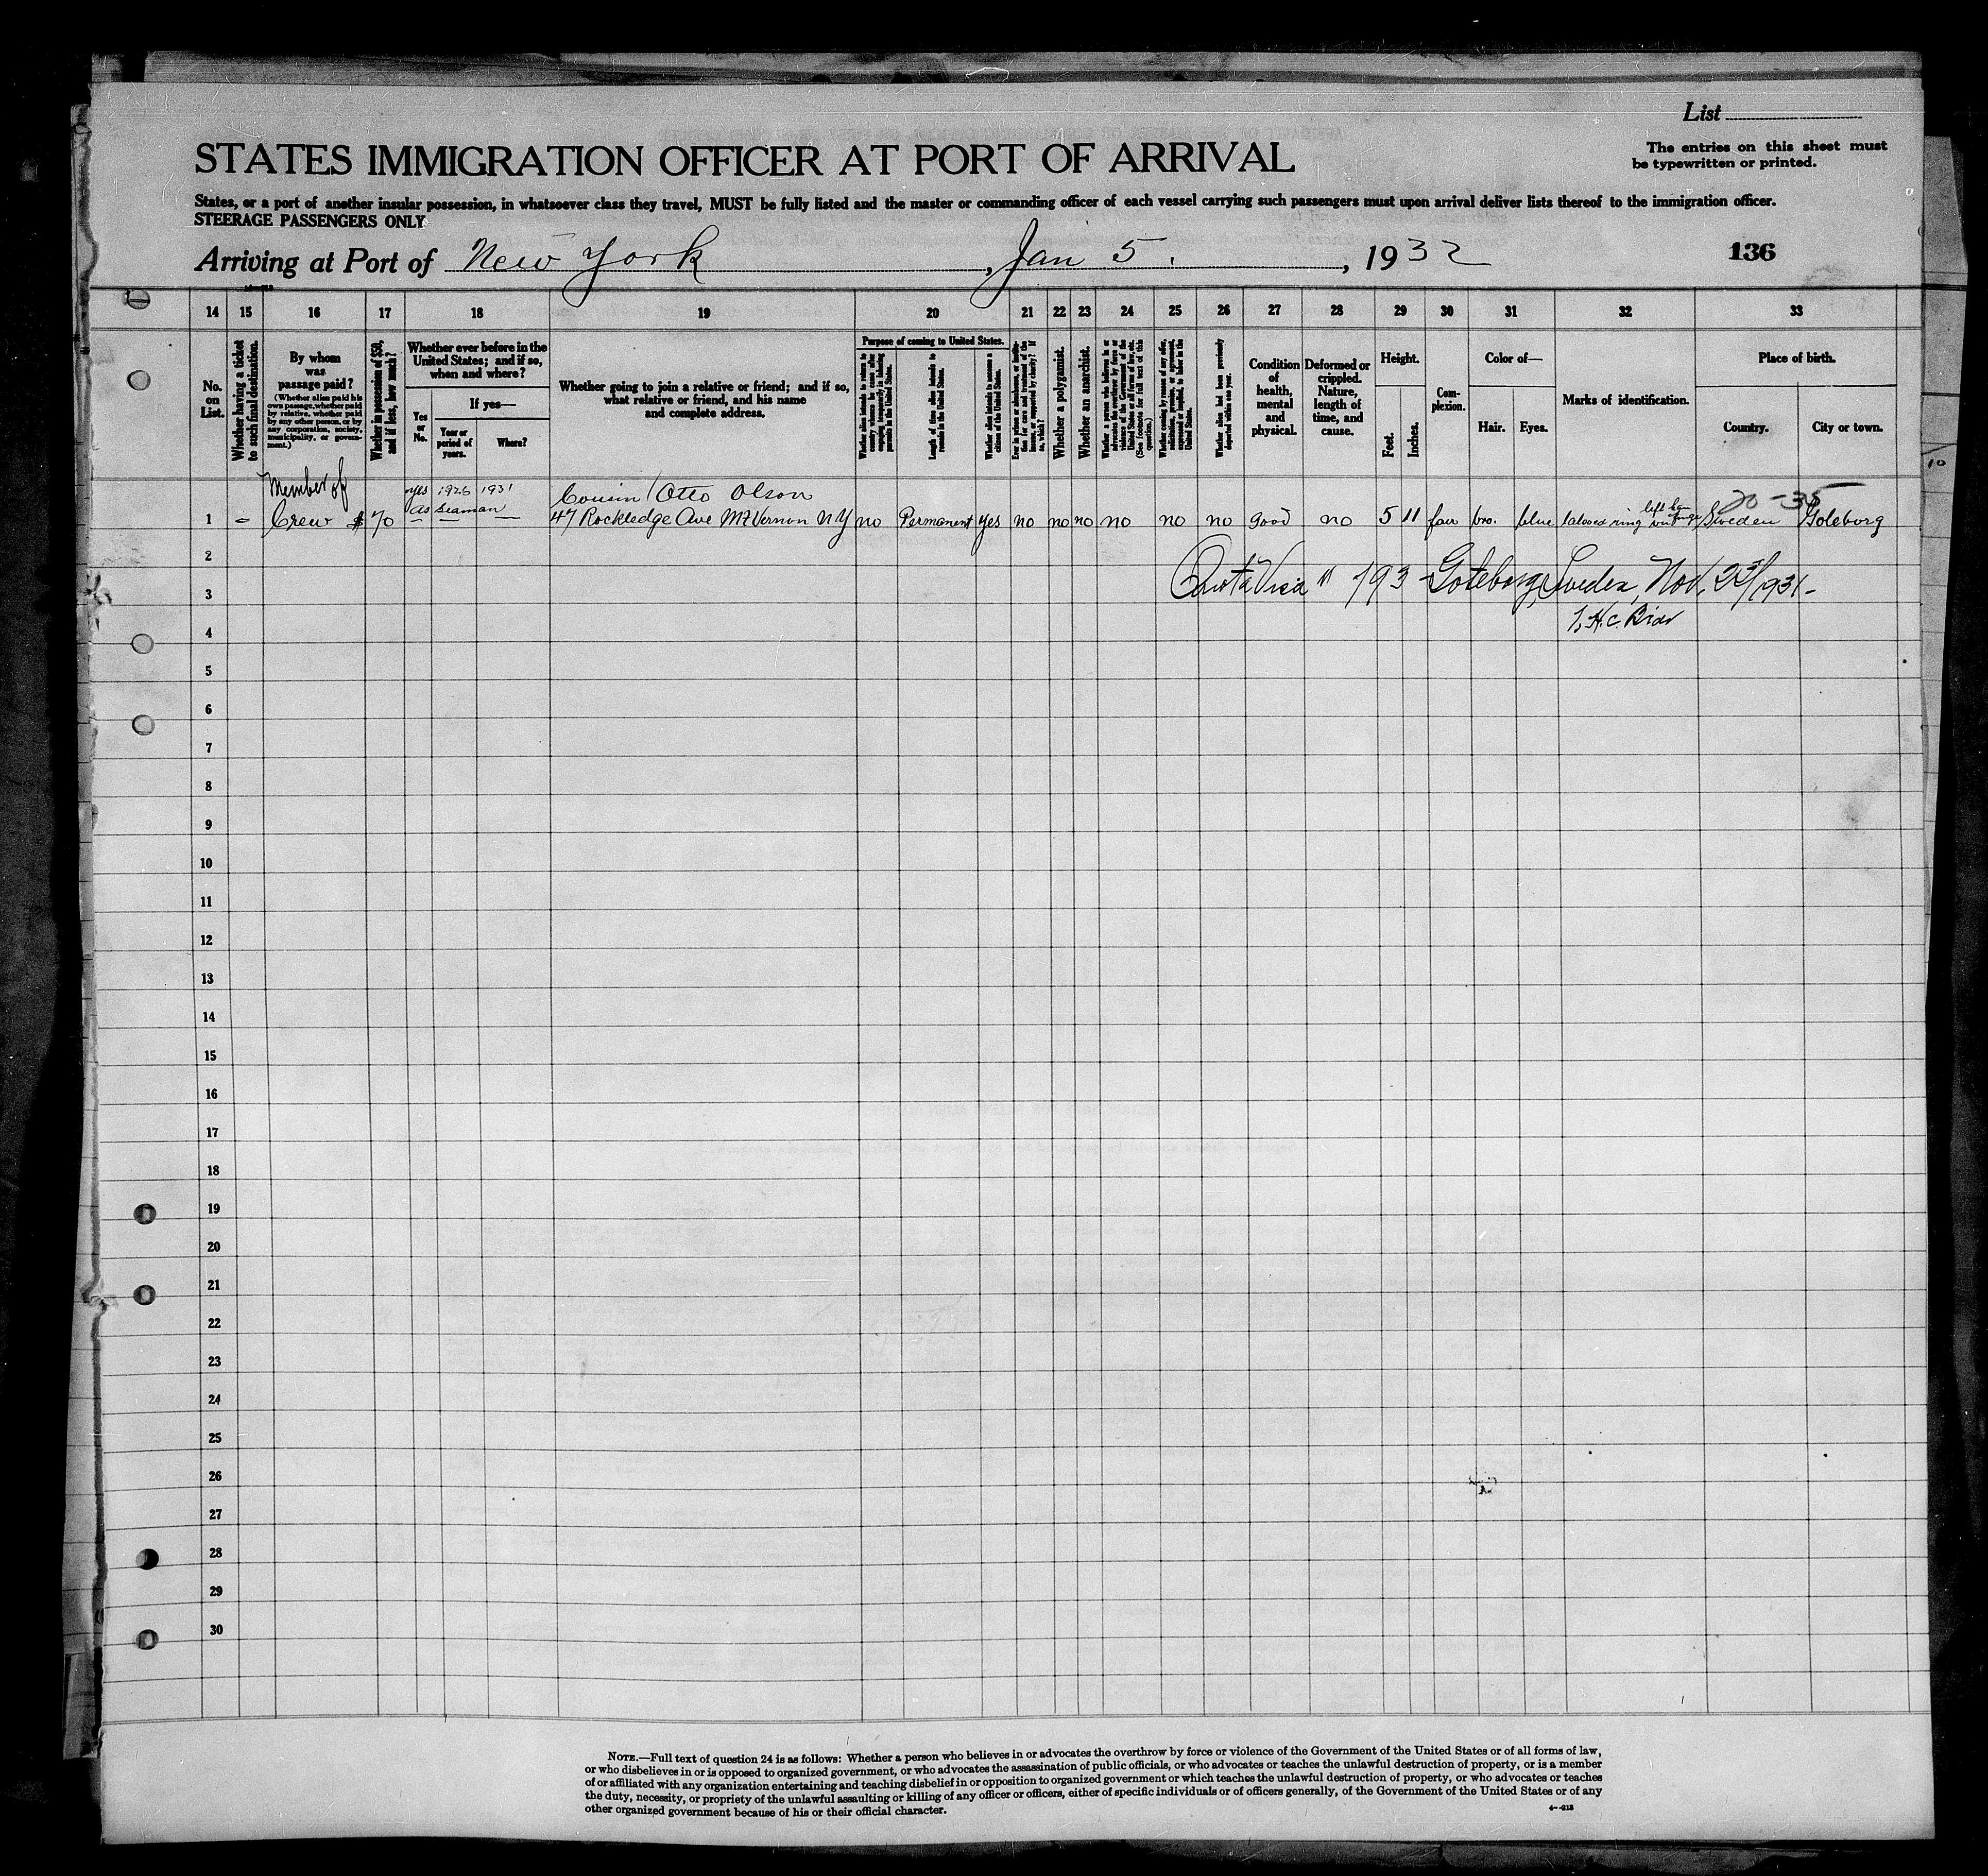 List
STATES IMMIGRATION OFFICER AT PORT OF ARRIVAL
The entries on this sheet must
be typewritten or printed.
States, or a port of another insular possession, in whatsoever class they travel, MUST be fully listed and the master or commanding officer of each vessel carrying such passengers must upon arrival deliver lists thereof to the immigration officer.
STEERAGE PASSENGERS ONLY
Arriving at Port of New York, Jan 5., 1932
136
14 15 16 17 18 19 20 21 22 23 24 25 26 27 28 29 30 31 32 33
No. on List.
Whether having a ticket to such final destination.
By whom was passage paid?
(Whether alien paid his own passage, whether paid by relative, whether paid by any other person, or by any corporation, society, municipality, or government.)
Whether in possession of $50, and if less, how much?
Whether ever before in the United States; and if so, when and where?
Yes or No.
If yes—
Year or period of years.
Where?
Whether going to join a relative or friend; and if so, what relative or friend, and his name and complete address.
Purpose of coming to United States.
Whether alien intends to return to country whence he came after engaging temporarily in laboring pursuits in the United States.
Length of time alien intends to remain in the United States.
Whether alien intends to become a citizen of the United States.
Ever in prison or almshouse, or institution for care and treatment of the insane, or supported by charity? If so, which?
Whether a polygamist.
Whether an anarchist.
Whether a person who believes in or advocates the overthrow by force or violence of the Government of the United States or all forms of law, etc. (See footnote for full text of this question.)
Whether coming by reason of any offer, solicitation, promise, or agreement, expressed or implied, to labor in the United States.
Whether alien had been previously deported within one year.
Condition of health, mental and physical.
Deformed or crippled. Nature, length of time, and cause.
Height.
Feet.
Inches.
Complexion.
Color of—
Hair.
Eyes.
Marks of identification.
Place of birth.
Country.
City or town.
10
Member of yes 1926 1931 Cousin Otto Olson 20-35
1 - Crew $70 as seaman 47 Rockledge Ave Mt Vernon N Y no Permanent yes no no no no no no good no 5 11 fair bro. blue tatooed ring left Sweden Goteborg
2
Quota Visa 793 Goteborg, Sweden, Nov. 23/1931-
3
4
5
6
7
8
9
10
11
12
13
14
15
16
17
18
19
20
21
22
23
24
25
26
27
28
29
30
NOTE.—Full text of question 24 is as follows: Whether a person who believes in or advocates the overthrow by force or violence of the Government of the United States or of all forms of law,
or who disbelieves in or is opposed to organized government, or who advocates the assassination of public officials, or who advocates or teaches the unlawful destruction of property, or is a member
of or affiliated with any organization entertaining and teaching disbelief in or opposition to organized government or which teaches the unlawful destruction of property, or who advocates or teaches
the duty, necessity, or propriety of the unlawful assaulting or killing of any officer or officers, either of specific individuals or of officers generally, of the Government of the United States or of any
other organized government because of his or their official character.